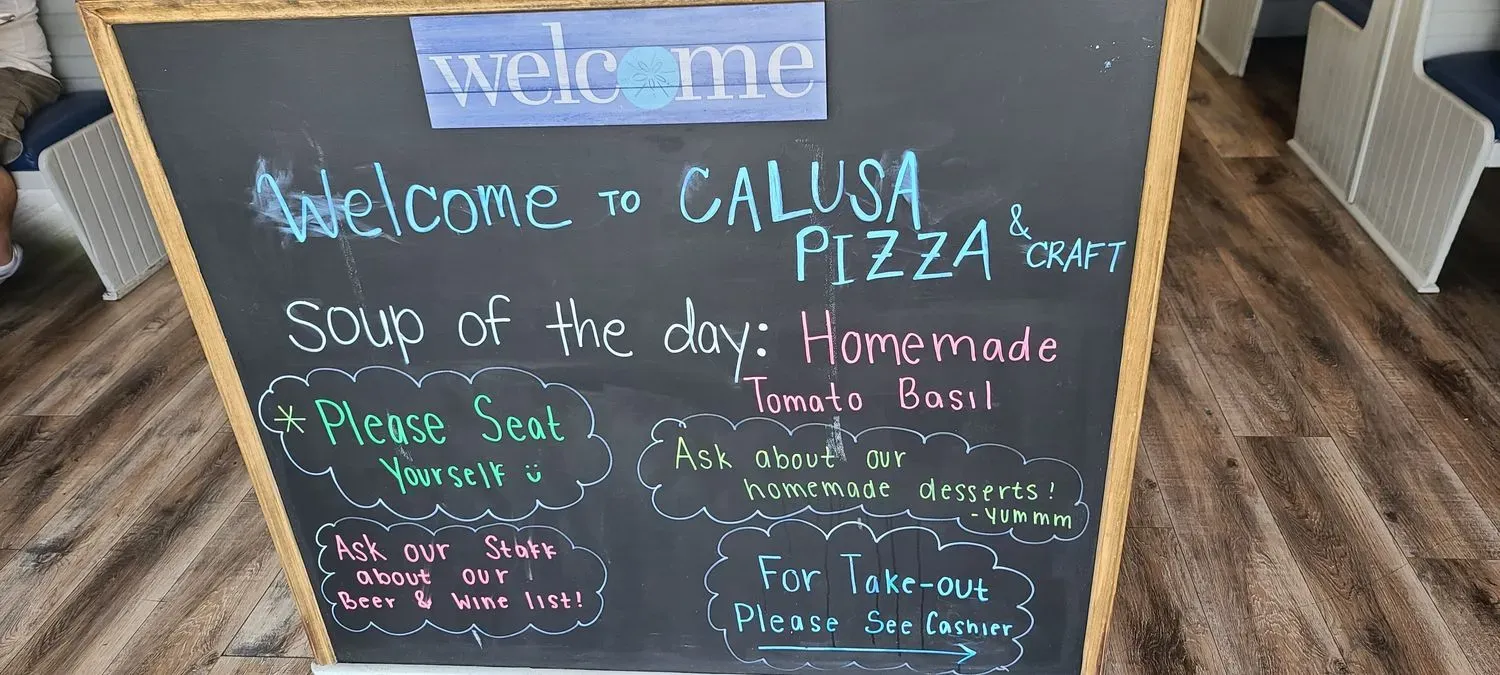 welcome
Welcome TO CALUSA
PIZZA & CRAFT
Soup of the day: Homemade
Tomato Basil
* Please Seat
Yourself ü
Ask about our
homemade desserts!
-Yummm
Ask our Staff
about our
Beer & Wine list!
For Take-out
Please See Cashier